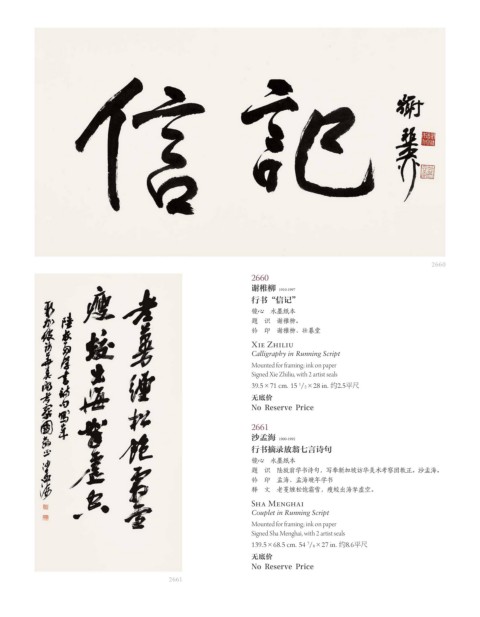 信記
謝稚柳
2660
2660
谢稚柳 1910-1997
行书“信记”
镜心 水墨纸本
题 识 谢稚柳。
钤 印 谢稚柳、壮暮堂
XIE ZHILIU
Calligraphy in Running Script
Mounted for framing; ink on paper
Signed Xie Zhiliu, with 2 artist seals
39.5 × 71 cm. 15 1/2 × 28 in. 约2.5平尺
无底价
No Reserve Price
2661
沙孟海 1900-1992
行书摘录放翁七言诗句
镜心 水墨纸本
题 识 陆放翁学书诗句，写奉新加坡访华美术考察团教正。沙孟海。
钤 印 孟海、孟海晚年学书
释 文 老蔓缠松饱霜雪，瘦蛟出海挐虚空。
SHA MENGHAI
Couplet in Running Script
Mounted for framing; ink on paper
Signed Sha Menghai, with 2 artist seals
139.5 × 68.5 cm. 54 7/8 × 27 in. 约8.6平尺
无底价
No Reserve Price
老蔓纏松飽霜雪
瘦蛟出海挐虛空
陸放翁學書詩句寫奉
新加坡訪華美術考察團教正 沙孟海
2661